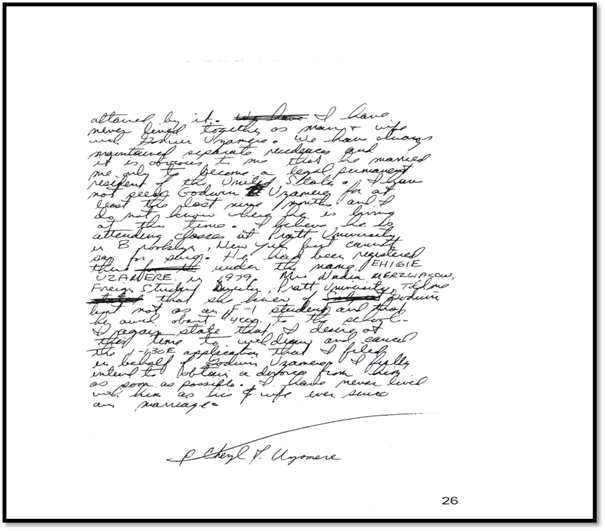 attained by it. I have
never lived together as man & wife
with Godwin Uzamere. We have always
maintained separate residences and
it is obvious to me that he married
me only to become a legal permanent
resident of the United States. I have
not seen Godwin Uzamere for at
least the last nine months and I
do not know where he is living
at this time. I believe he is
attending classes at Pratt University
in Brooklyn, New York but cannot
say for sure. He had been registered
there under the name EHIGIE
UZAMERE in 1979. Mrs Nadia MERZLIAKOW,
Foreign Student Pratt University
that she knew of Godwin
but not as an F-1 student and that
he owed about to the school.
I again state that I desire at
this time to withdraw and cancel
the I-130E application that I filed
in behalf of Godwin Uzamere. I fully
intend to obtain a divorce from him
as soon as possible. I have never lived
with him as his wife ever since
our marriage.
Cheryl F. Uzamere
26